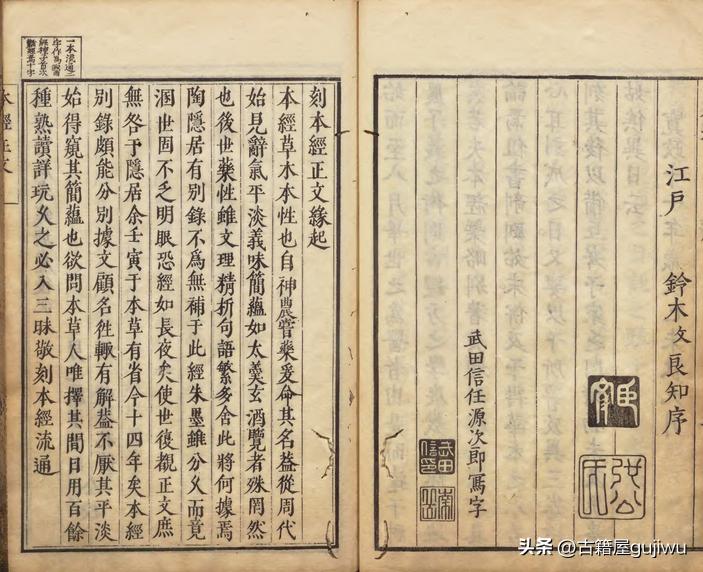 江戶 鈴木文良知序
武田信任源次郎寫字
刻本經正文緣起
本經草木本性也自神農嘗藥爰命其名葢從周代
始見辭氣平淡義味簡蘊如太羹玄酒覽者殊罔然
也後世藥性雖文理精折句語繁多舍此將何據焉
陶隱居有別錄不爲無補于此經朱墨雖分久而竟
溷世固不乏明眼恐經如長夜矣使世復覩正文庶
無咎于隱居余壬寅于本草有省今十四年矣本經
別錄頗能分別據文顧名徃輙有解葢不厭其平淡
始得窺其簡蘊也欲問本草人唯擇其間日用百餘
種熟讀詳玩久之必入三昧敬刻本經流通
一本流通之
本經正文
头条 @古籍屋gujiwu